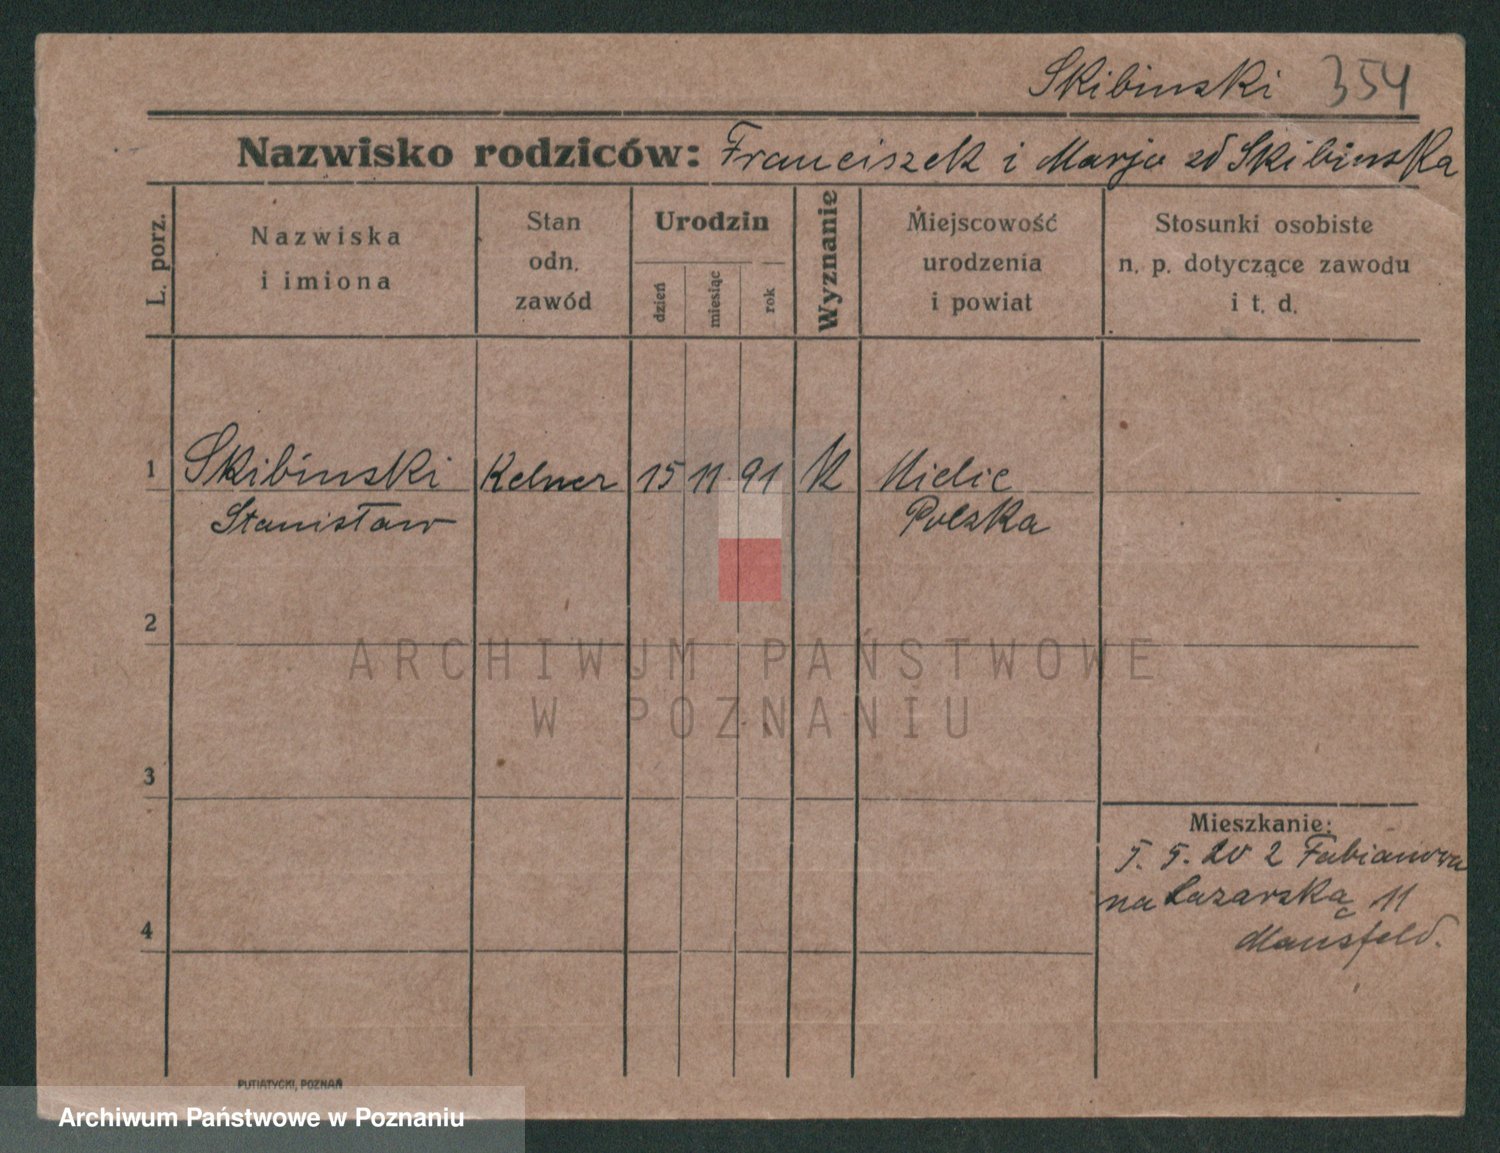 Skibinski 354
Nazwisko rodziców: Franciszek i Marja zd Skibinska
L. porz.
Nazwiska
i imiona
Stan
odn.
zawód
Urodzin
dzień
miesiąc
rok
Wyznanie
Miejscowość
urodzenia
i powiat
Stosunki osobiste
n. p. dotyczące zawodu
i t. d.
1 Skibinski Kelner 15 11 91 K Mielic
Stanisław Polska
2
ARCHIWUM PAŃSTWOWE
W POZNANIU
3
Mieszkanie:
5. 20 2 Fabianowa
na Lazarską 11
4
Mansfeld.
PUTIATYCKI, POZNAŃ
Archiwum Państwowe w Poznaniu